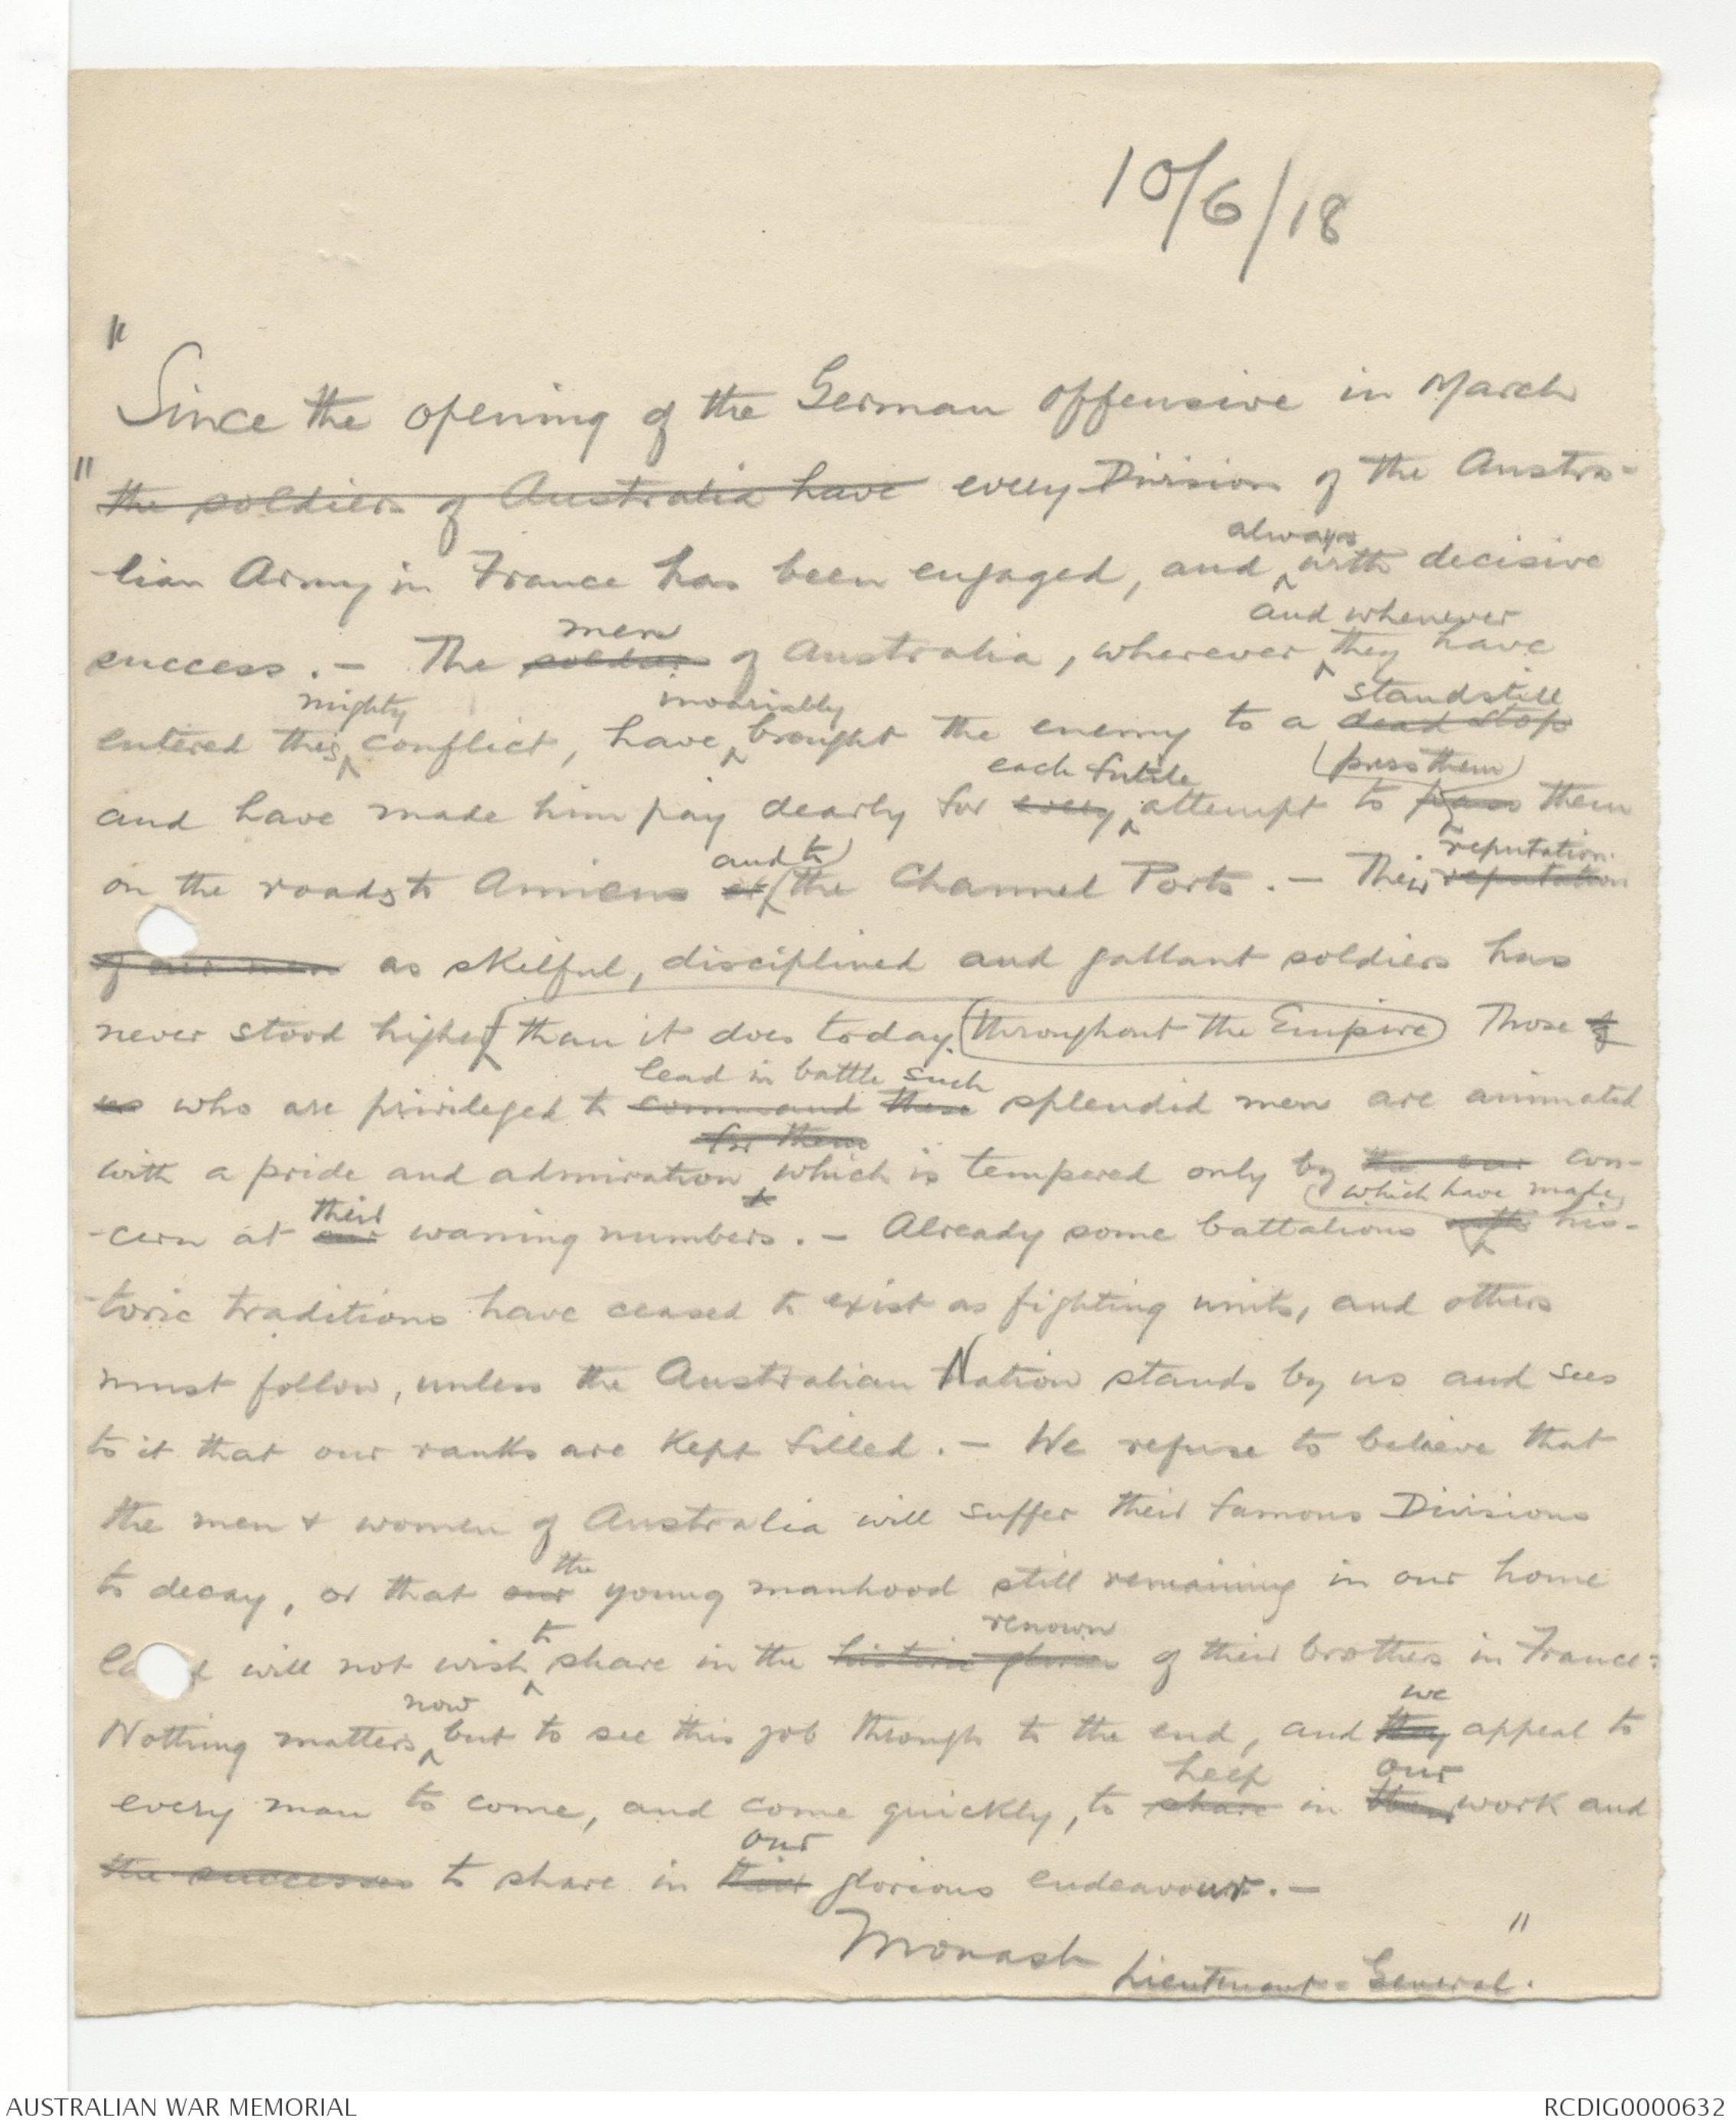 10/6/18
"
Since the opening of the German offensive in March
" the soldiers of Australia have every Division of the Austra-
always
lian Army in France has been engaged, and ^ with decisive
men and whenever
success. - The soldiers of Australia, wherever ^ they have
mighty invariably standstill
entered this ^ conflict, have ^ brought the enemy to a dead stop
each futile (press them)
and have made him pay dearly for every ^ attempt to pass them
and to) reputation
on the roads to Amiens or (the Channel Ports. - Their reputation
of our men as skilful, disciplined and gallant soldiers has
never stood higher (than it does today. (throughout the Empire) Those of
lead in battle such
us who are privileged to command these splendid men are animated
for them
with a pride and admiration which is tempered only by the our con-
their (which have made)
-cern at our waning numbers. - Already some battalions with his-
-toric traditions have ceased to exist as fighting units, and others
must follow, unless the Australian Nation stands by us and sees
to it that our ranks are kept filled. - We refuse to believe that
the men + women of Australia will suffer their famous Divisions
the
to decay, or that our young manhood still remaining in our home
to renown
la d will not wish ^ share in the historic glories of their brothers in France:
now we
Nothing matters ^ but to see this job through to the end, and they appeal to
help our
every man to come, and come quickly, to share in their work and
our
the successes to share in their glorious endeavour. -
"
Monash Lieutenant-General.
AUSTRALIAN WAR MEMORIAL
RCDIG0000632